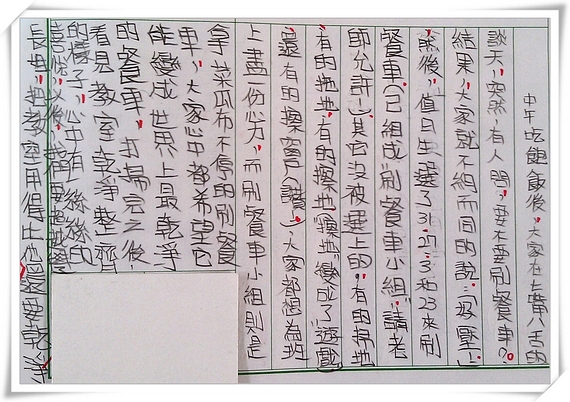 中午吃飽飯後，大家在七嘴八舌的
談天，突然，有人問：要不要刷餐車？
結果，大家就不約而同的說：「好啊！」
然後，值日生選了31、27、3和23來刷
餐車，組成「刷餐車小組」請老
師允許！其它沒被選上的，有的掃地
有的拖地，有的擦地，變成了「遊戲」
還有的擦窗，大家都想為班
上盡一份心力，而刷餐車小組則是
拿菜瓜布不停的刷餐
車，大家心中都希望它
能變成世界上最乾淨
的餐車，打掃完之後，
看見教室乾淨整齊
的樣子，心中有一絲絲的
喜悅，以後，我們要超越學
長姐，把教室用得比他還要乾淨